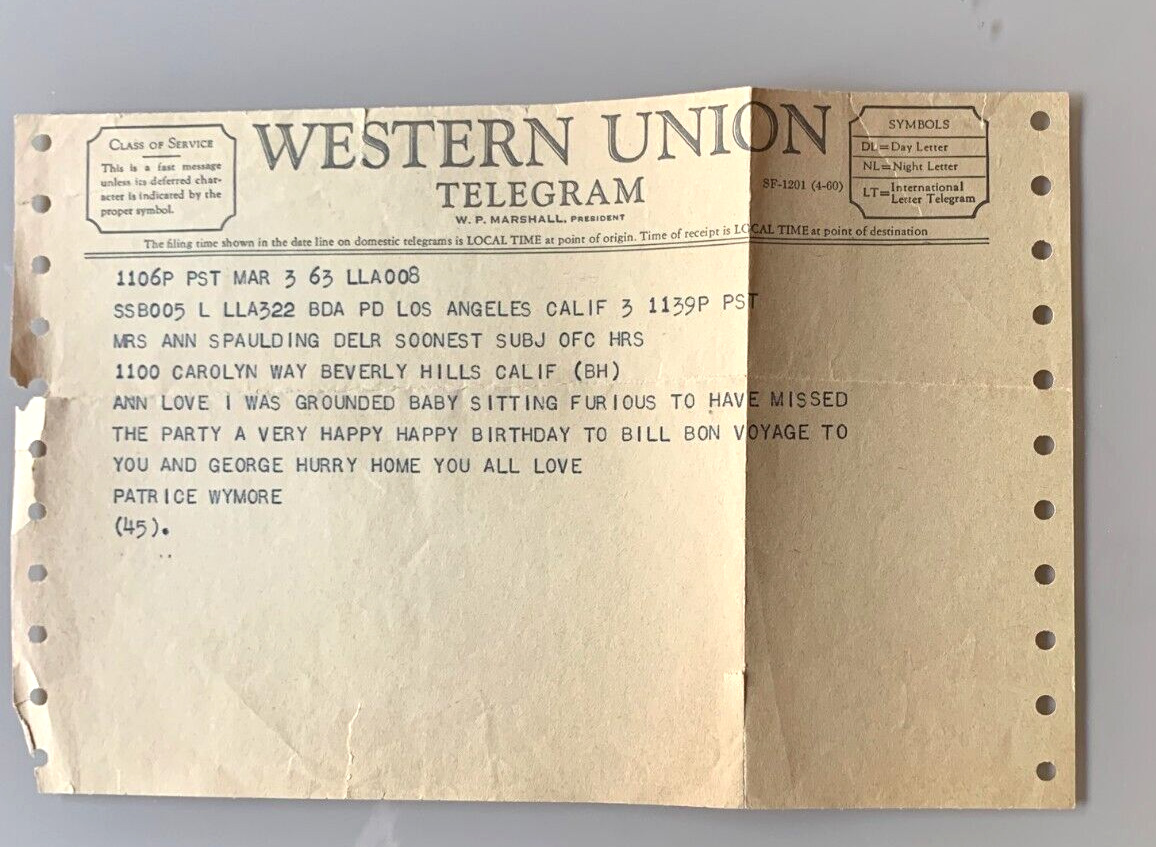 CLASS OF SERVICE
This is a fast message
unless its deferred char-
acter is indicated by the
proper symbol.
WESTERN UNION
TELEGRAM
W. P. MARSHALL, PRESIDENT
SF-1201 (4-60)
SYMBOLS
DL=Day Letter
NL=Night Letter
LT=International Letter Telegram
The filing time shown in the date line on domestic telegrams is LOCAL TIME at point of origin. Time of receipt is LOCAL TIME at point of destination
1106P PST MAR 3 63 LLA008
SSB005 L LLA322 BDA PD LOS ANGELES CALIF 3 1139P PST
MRS ANN SPAULDING DELR SOONEST SUBJ OFC HRS
1100 CAROLYN WAY BEVERLY HILLS CALIF (BH)
ANN LOVE I WAS GROUNDED BABY SITTING FURIOUS TO HAVE MISSED
THE PARTY A VERY HAPPY HAPPY BIRTHDAY TO BILL BON VOYAGE TO
YOU AND GEORGE HURRY HOME YOU ALL LOVE
PATRICE WYMORE
(45).